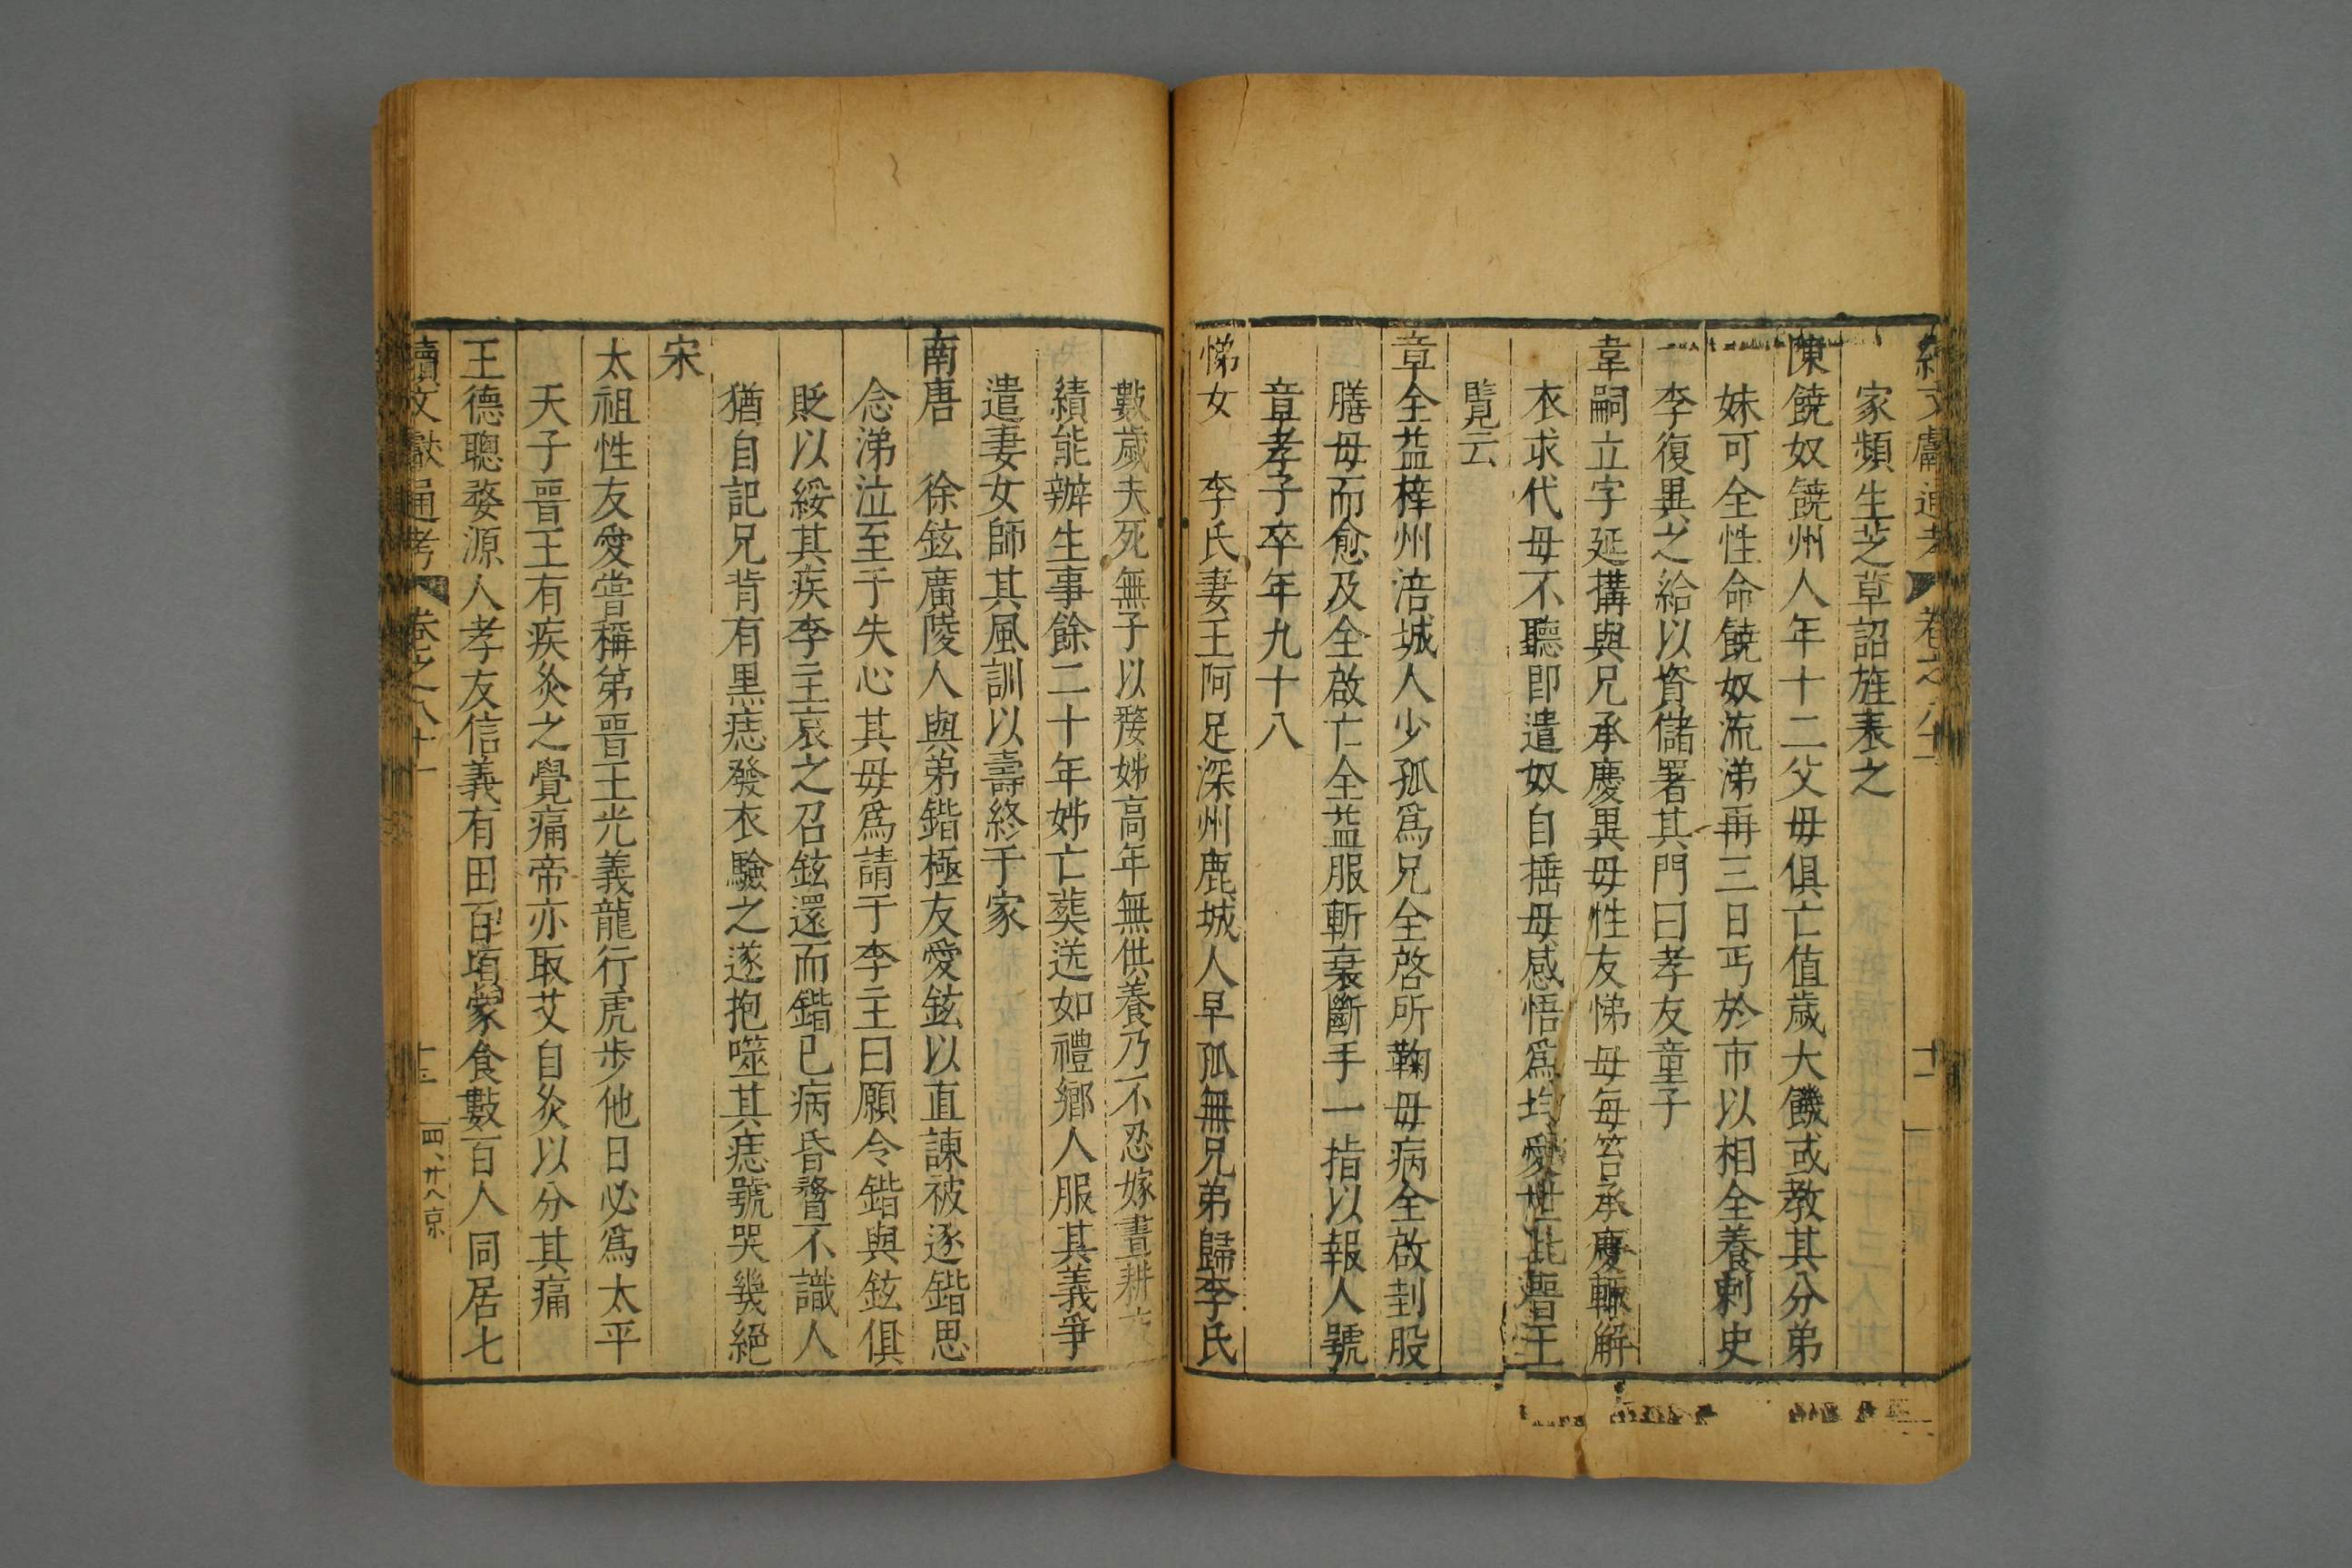 續文獻通考 卷之八十一 十二
家頻生芝草詔旌表之
陳饒奴饒州人年十二父毋俱亡值歲大饑或教其分弟
妹可全性命饒奴流涕再三日丐於市以相全養刺史
李復異之給以資儲署其門曰孝友童子
韋嗣立字延搆與兄承慶異毋性友悌毋每笞承慶輒解
衣求代毋不聽即遣奴自捶毋感悟爲均愛世比晉王
覽云
章全益梓州涪城人少孤爲兄全啓所鞠毋病全啟刲股
膳毋而愈及全啟亡全益服斬衰斷手一指以報人號
章孝子卒年九十八
悌女 李氏妻王阿足深州鹿城人早孤無兄弟歸李氏
數歲夫死無子以嫠姊高年無供養乃不忍嫁晝耕夜
績能辦生事餘二十年姊亡葬送如禮鄉人服其義爭
遣妻女師其風訓以壽終于家
南唐 徐鉉廣陵人與弟鍇極友愛鉉以直諫被逐鍇思
念涕泣至于失心其毋爲請于李主曰願令鍇與鉉俱
貶以綏其疾李主哀之召鉉還而鍇已病昏瞀不識人
猶自記兄背有黒痣發衣驗之遂抱噬其痣號哭幾絕
宋
太祖性友愛嘗稱弟晋王光義龍行虎步他日必爲太平
天子晋王有疾灸之覺痛帝亦取艾自灸以分其痛
王德聰婺源人孝友信義有田百頃家食數百人同居七
續文獻通考 卷之八十一 十二 四、廿八京